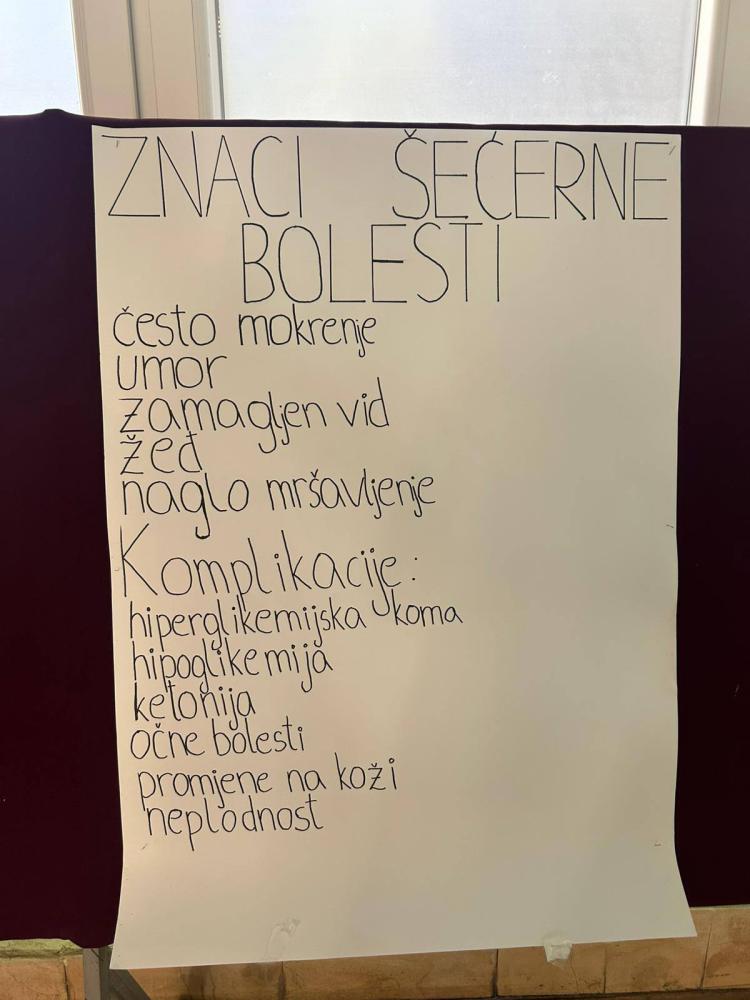 ZNACI ŠEĆERNE
BOLESTI
često mokrenje
umor
zamagljen vid
žeđ
naglo mršavljenje
Komplikacije:
hiperglikemijska koma
hipoglikemija
ketonija
očne bolesti
promjene na koži
neplodnost